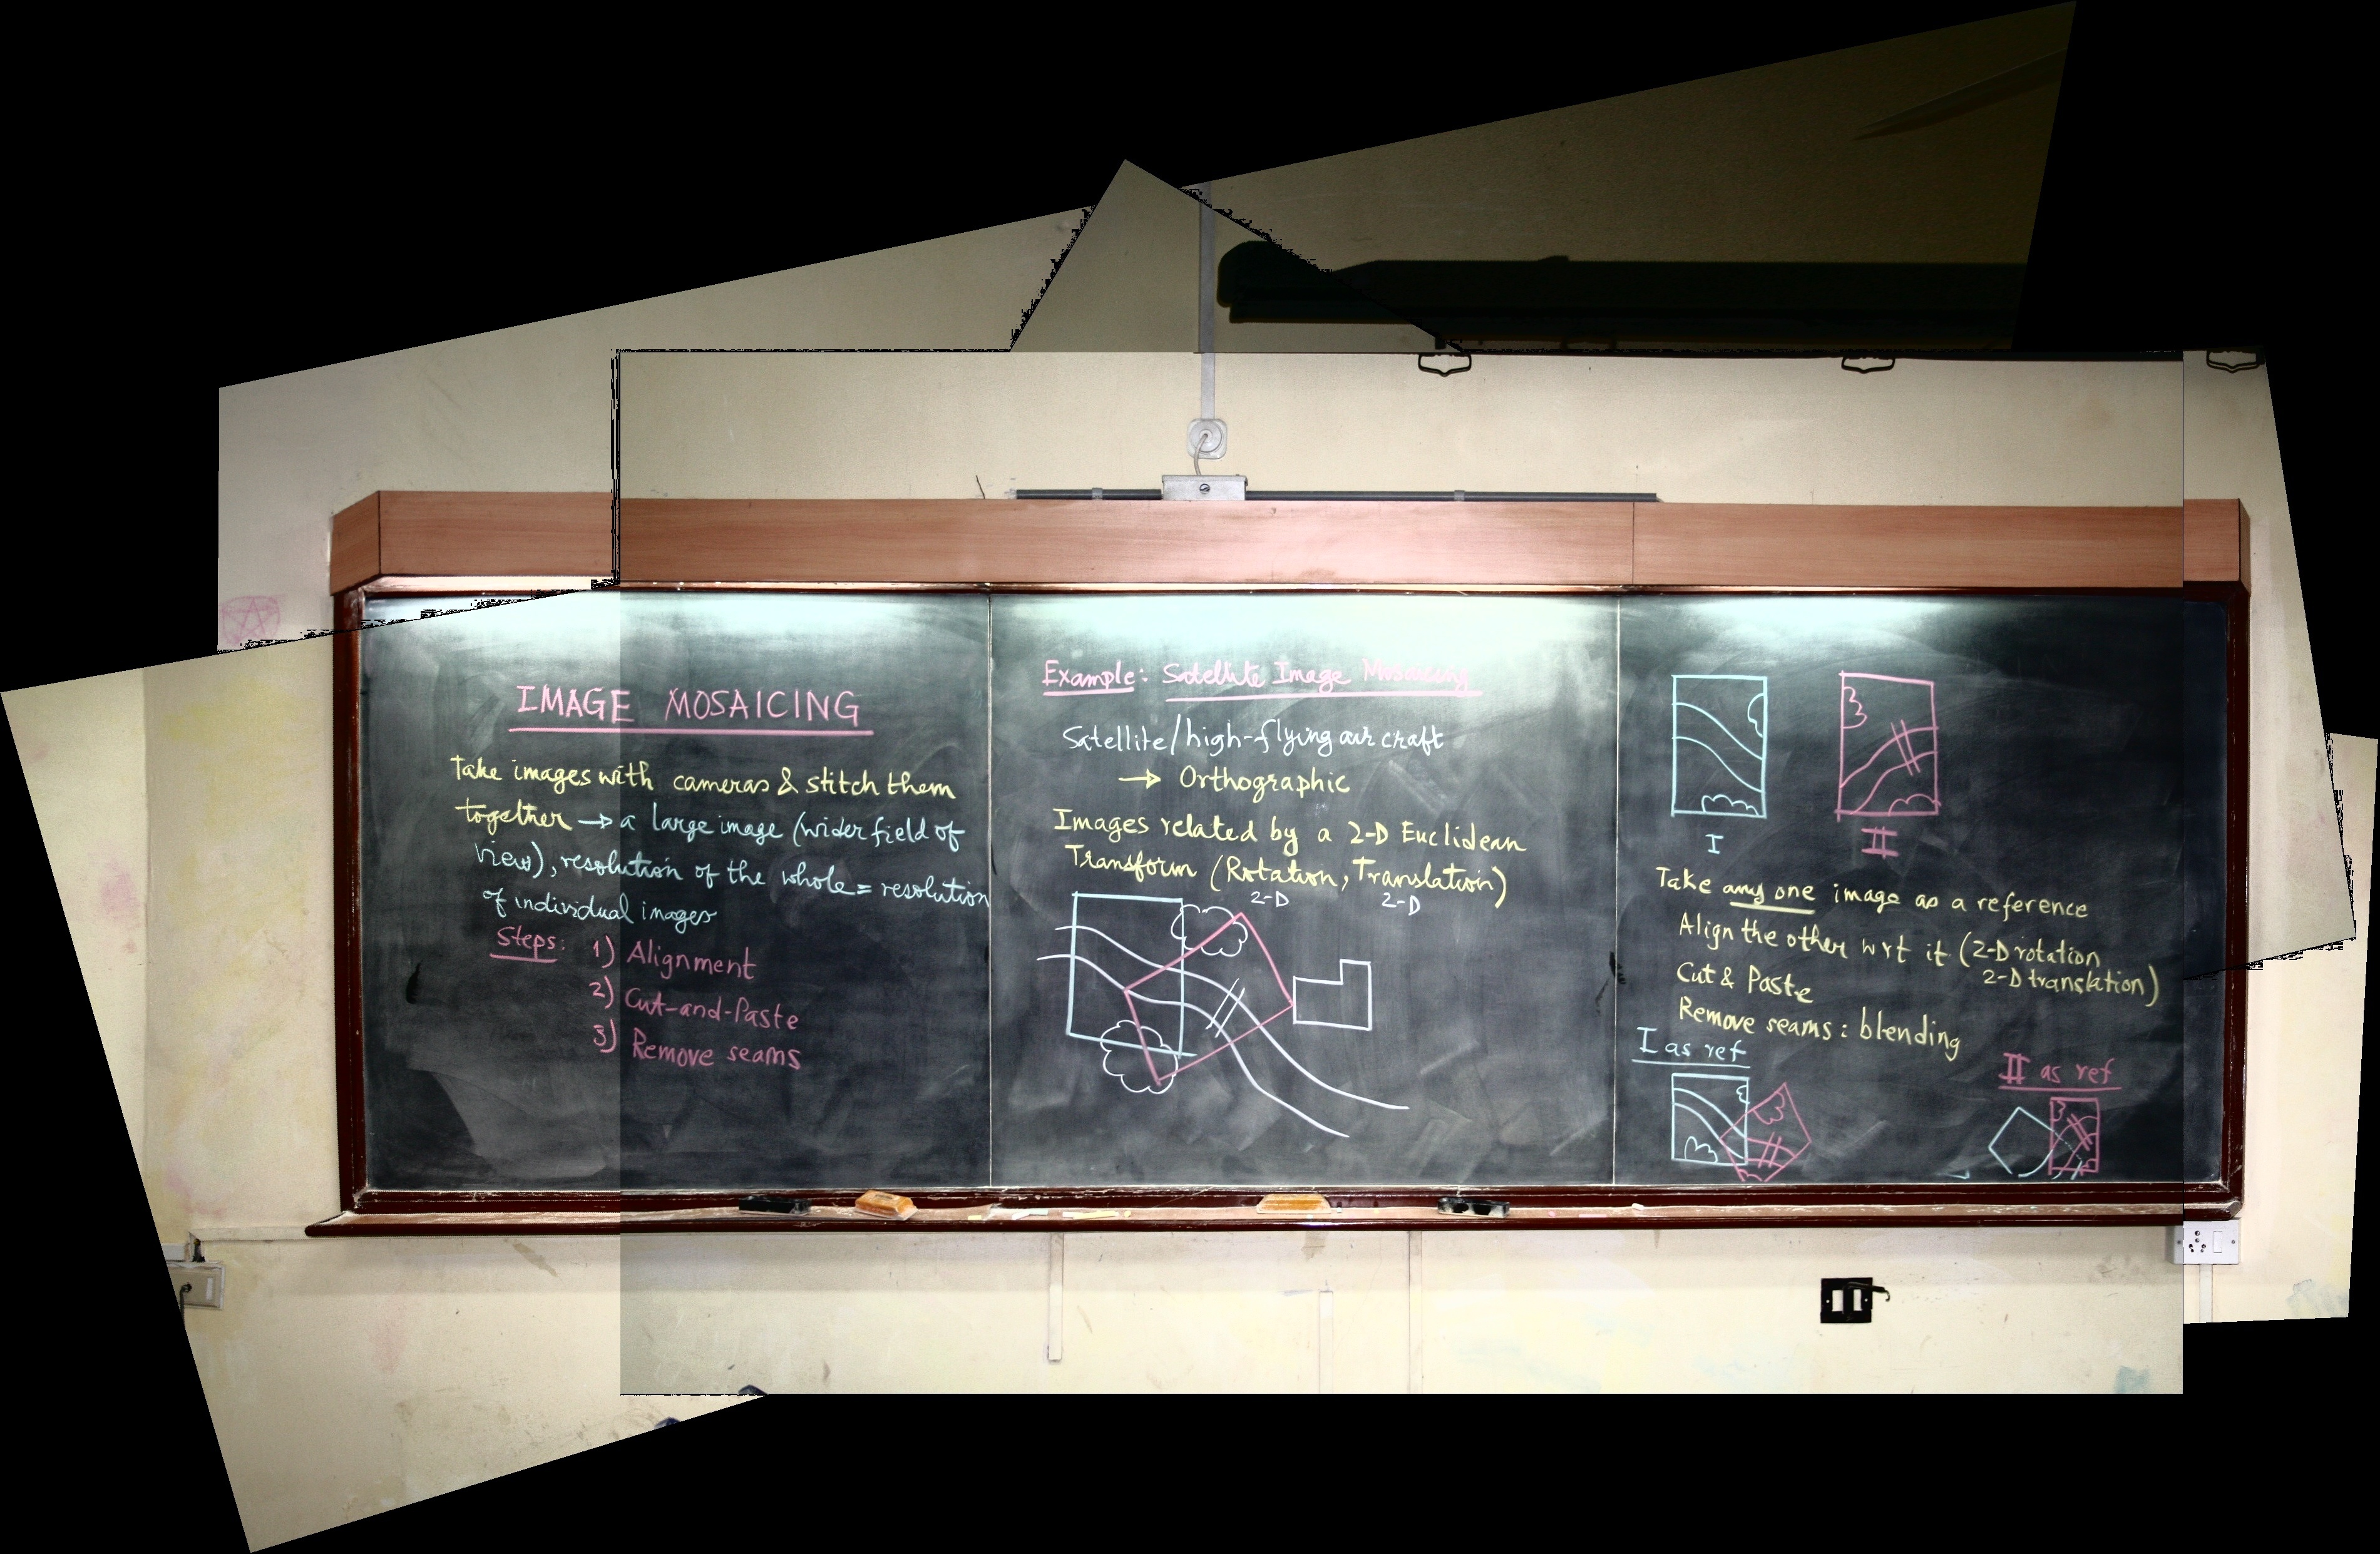 IMAGE MOSAICING
Take images with cameras & stitch them
together → a large image (wider field of
view), resolution of the whole = resolution
of individual images
Steps: 1) Alignment
2) Cut-and-Paste
3) Remove seams
Example: Satellite Image Mosaicing
Satellite/high-flying air craft
→ Orthographic
Images related by a 2-D Euclidean
Transform (Rotation, Translation)
2-D 2-D
I II
Take any one image as a reference
Align the other wrt it (2-D rotation
2-D translation)
Cut & Paste
Remove seams: blending
I as ref
II as ref